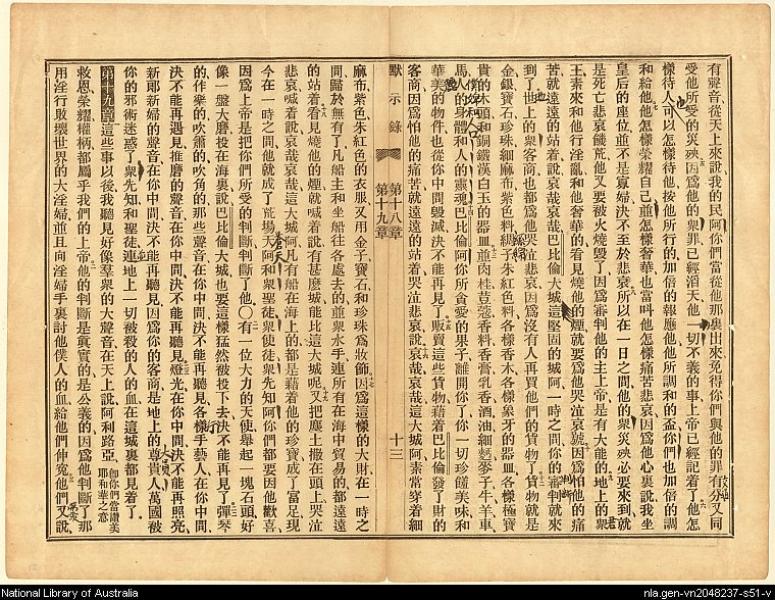 有聲音從天上來說我的民阿你們當從他那裏出來免得你們與他的罪有分又同
受他所受的災殃因爲他的衆罪已經滔天他一切不義的事上帝已經記着了他怎
樣待人可以怎樣待他按他所行的加倍的報應他他所調和的盃你們也加倍的調
和給他他怎樣榮耀自己並怎樣奢華也當叫他怎樣痛苦悲哀因爲他心裏說我坐
皇后的座位並不是寡婦決不至於悲哀所以在一日之間他的衆災殃必要來到就
是死亡悲哀饑荒他又要被火燒毀了因爲審判他的主上帝是有大能的地上的衆
王素來和他行淫亂和他奢華的看見燒他的煙就要爲他哭泣哀號因爲怕他的痛
苦就遠遠的站着說哀哉哀哉巴比倫大城這堅固的城阿一時之間你的審判就來
到了世上的衆客商也都爲他哭泣悲哀因爲沒有人再買他們的貨物了貨物就是
金銀寶石珍珠細麻布紫色料綢子朱紅色料各樣香木各樣象牙的器皿各樣極寶
貴的木頭和銅鐵漢白玉的器皿並肉桂荳蔻香料香膏乳香酒油細麪麥子牛羊車
馬人的身體和人的靈魂巴比倫阿你所貪愛的果子離開你了你一切珍饈美味和
華美的物件也從你中間毀滅決不能再見了販賣這些貨物藉着巴比倫發了財的
客商因爲怕他的痛苦就遠遠的站着哭泣悲哀說哀哉哀哉這大城阿素常穿着細
默示錄
第十八章
第十九章
十三
麻布紫色朱紅色的衣服又用金子寶石和珍珠爲妝飾因爲這樣的大財在一時之
間歸於無有了凡船主和坐船往各處去的並衆水手連所有在海中貿易的都遠遠
的站着看見燒他的煙就喊着說有甚麽城能比這大城呢又把塵土撒在頭上哭泣
悲哀喊着說哀哉哀哉這大城阿凡有船在海上的都是藉着他的珍寶成了富足現
今在一時之間他就成了荒場天阿和衆聖徒衆使徒衆先知阿你們都要因他歡喜
因爲上帝是把你們所受的判斷判斷了他〇有一位大力的天使舉起一塊石頭好
像一盤大磨投在海裏說巴比倫大城也要這樣猛然被投下去決不能再見了彈琴
的作樂的吹簫的吹角的那些聲音在你中間決不能再聽見各樣手藝人在你中間
決不能再遇見推磨的聲音在你中間決不能再聽見燈光在你中間決不能再照亮
新郎新婦的聲音在你中間決不能再聽見因爲你的客商是地上的尊貴人萬國被
你的邪術迷惑了衆先知和聖徒連地上一切被殺的人的血在這城裏都見着了
第十九章這些事以後我聽見好像羣衆的大聲音在天上說阿利路亞卽你們當讚美耶和華之意
救恩榮耀權柄都屬乎我們的上帝他的判斷是眞實的是公義的因爲他判斷了那
用淫行敗壞世界的大淫婦並且向淫婦手裏討他僕人的血給他們伸冤他們又說
National Library of Australia
nla.gen-vn2048237-s51-v